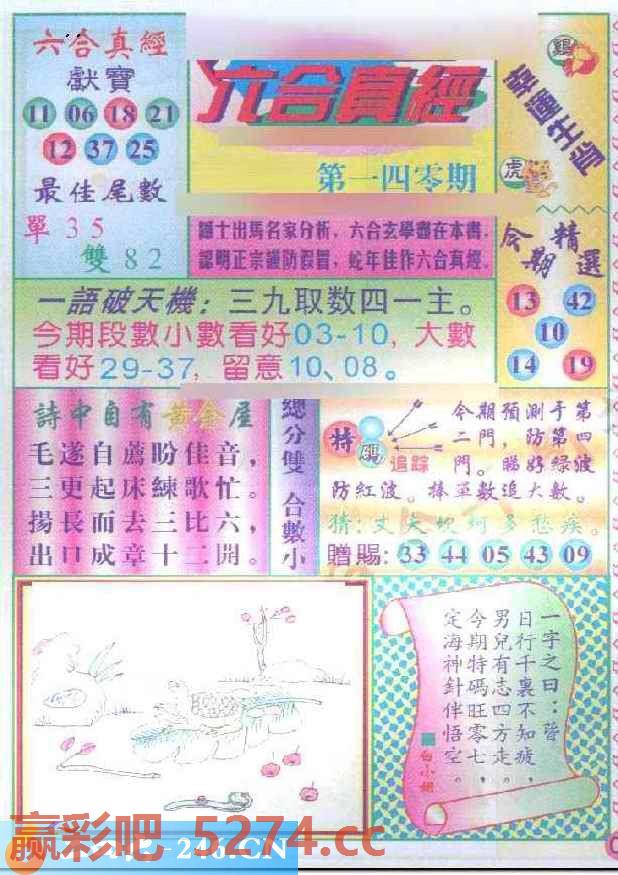 六合真經
獻寶
11 06 18 21
12 37 25
最佳尾數
單 3 5
雙 8 2
六合真經
第一四零期
雞
虎
今期精選
13 42
10
14 19
名家分析，六合玄學盡在本書，
認明正宗謹防假冒，蛇年佳作六合真經。
一語破天機：三九取数四一主。
今期段數小數看好03-10，大數
看好29-37，留意10、08。
詩中自有黃金屋
毛遂自薦盼佳音，
三更起床練歌忙。
揚長而去三比六，
出口成章十二開。
總分雙 合數小
特碼
追踪
今期預測于第
二門，防第四
門。睇好绿波
防紅波。捧單數追大數。
猜：丈夫坎坷多愁疾。
贈賜：33 44 05 43 09
一字之曰：
日行千裏不知疲，
男兒有志四方走，
今期特碼旺零七，
定海神針伴悟空。
白小姐
赢彩吧 5274.cc
246.CN